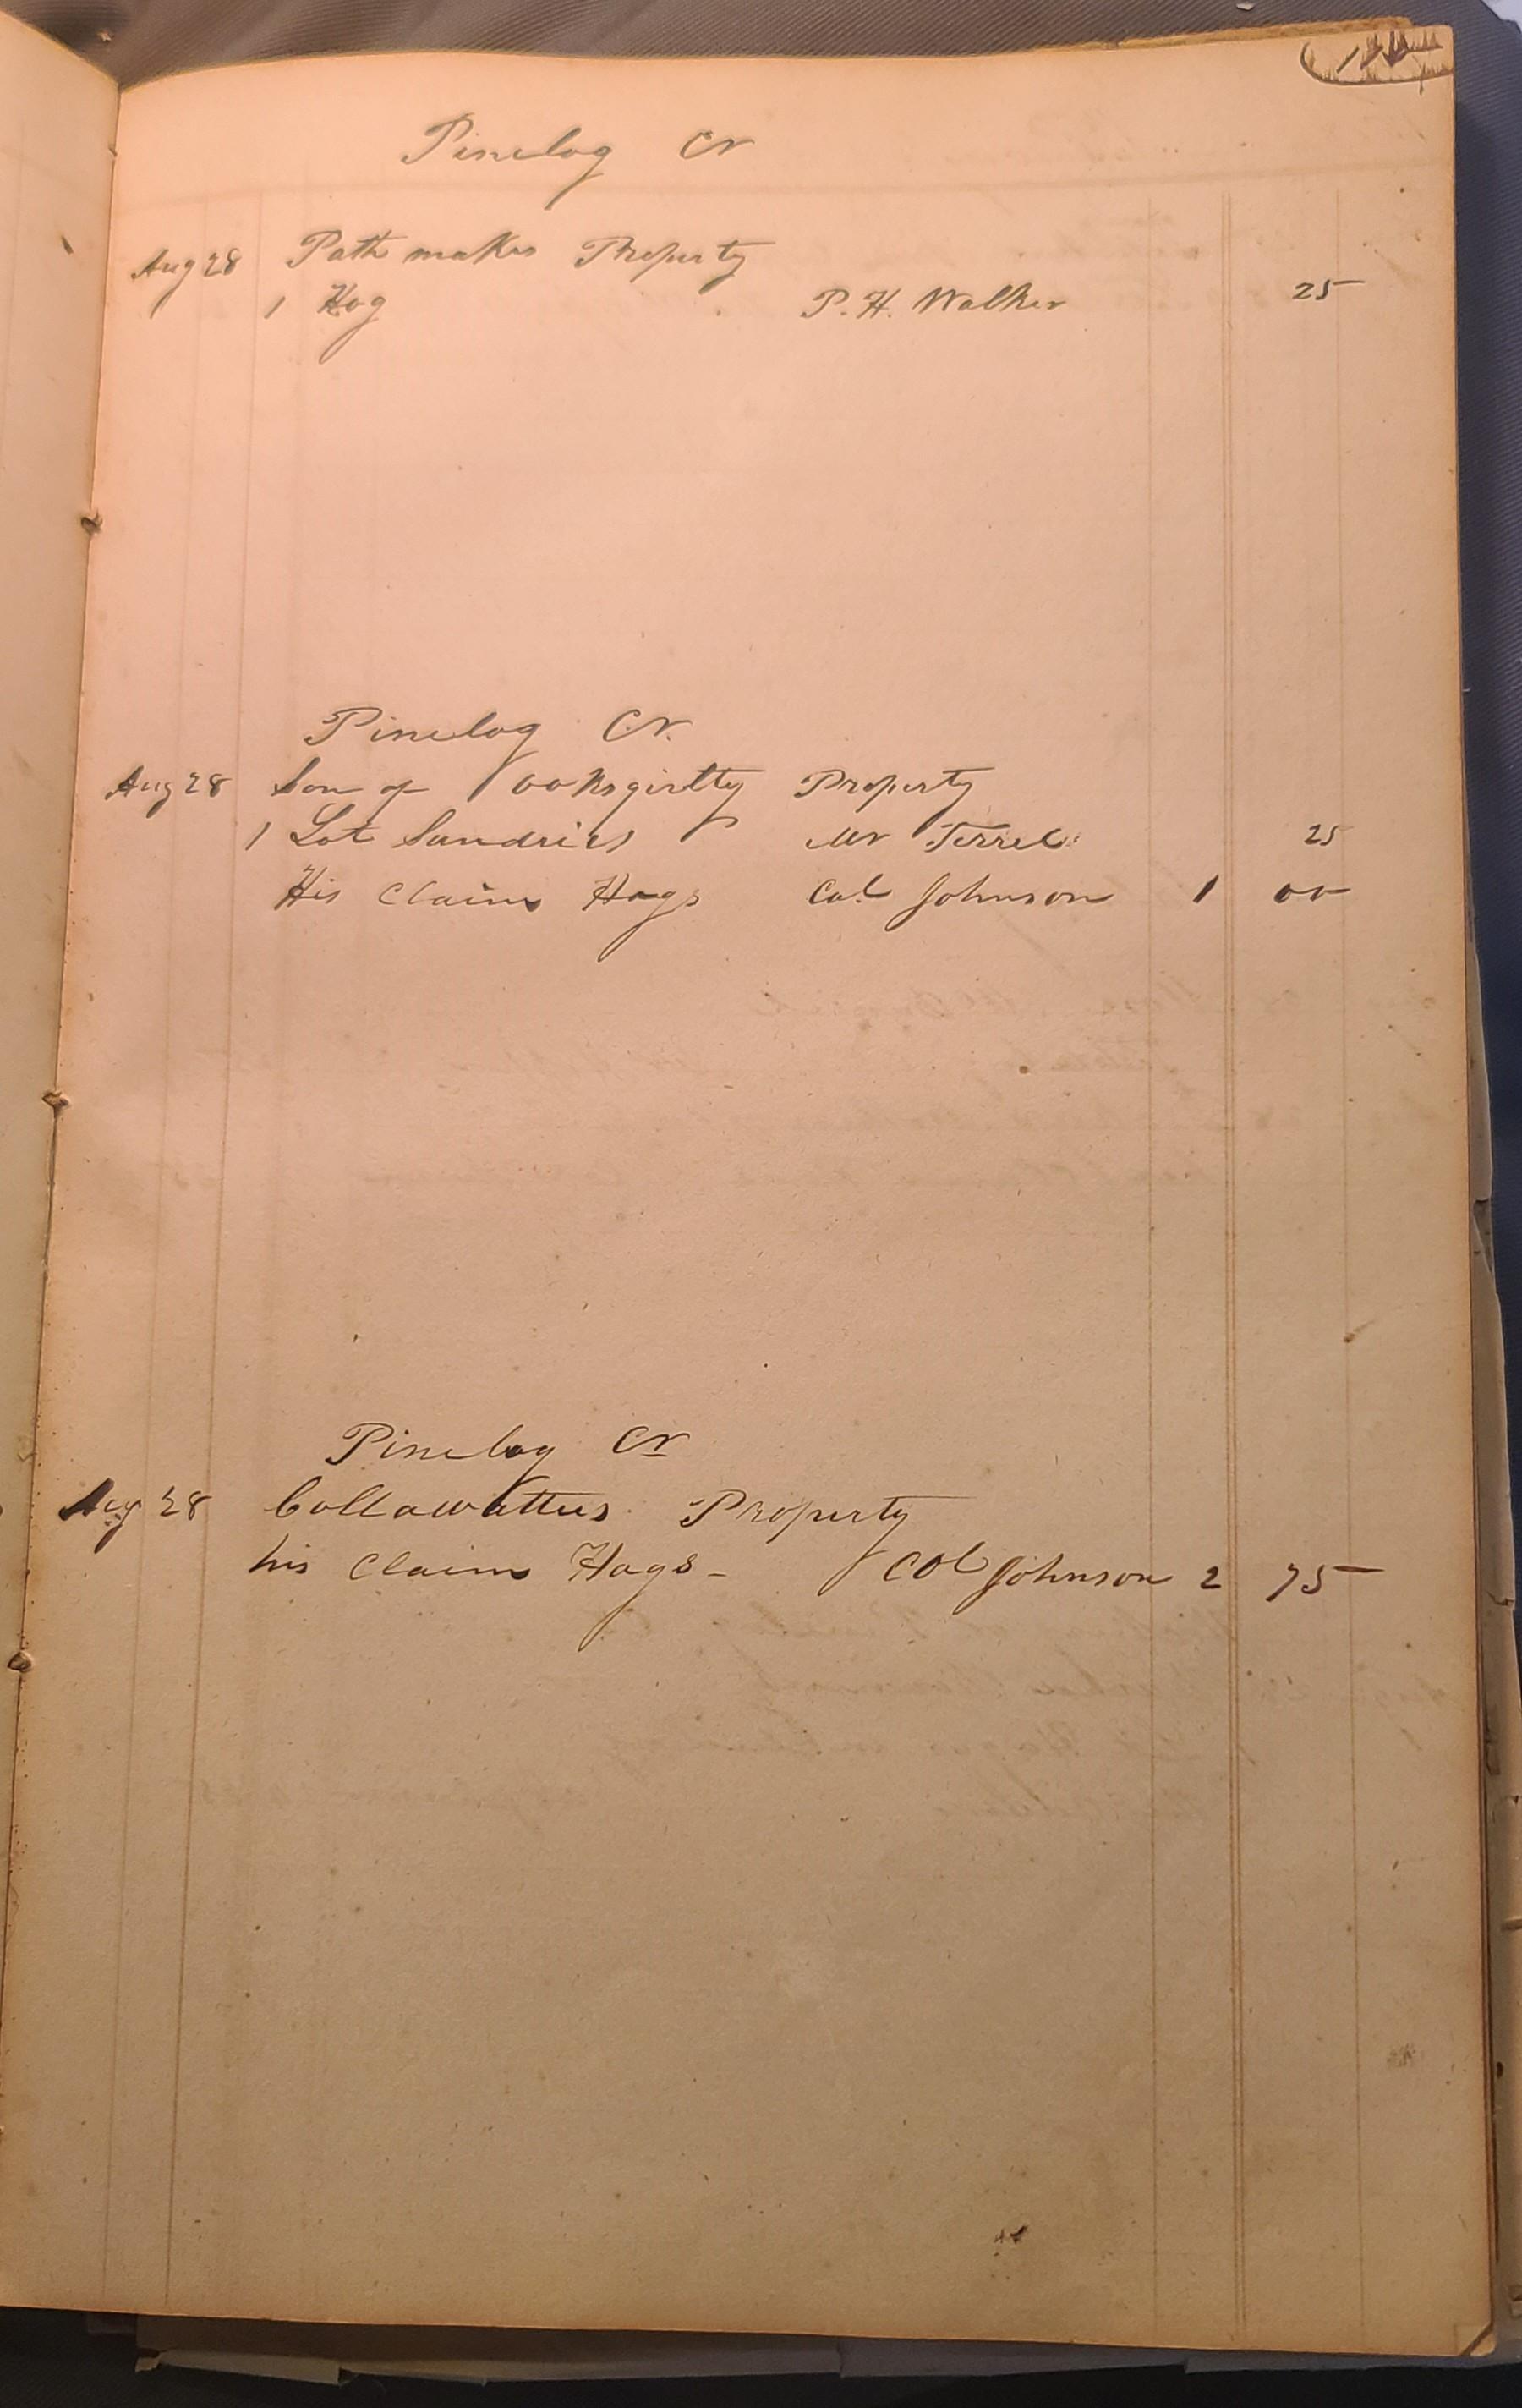 Pinelog Cr
Aug 28 Path makes Property
1 Hog P. H. Walker 25
Pinelog Cr.
Aug 28 Son of Property
1 Lot Sundries Mr Terrel 25
His Claim Hogs Col Johnson 1 00
Pinelog Cr
Aug 28 Collawattees Property
his Claim Hogs - Col Johnson 2 75